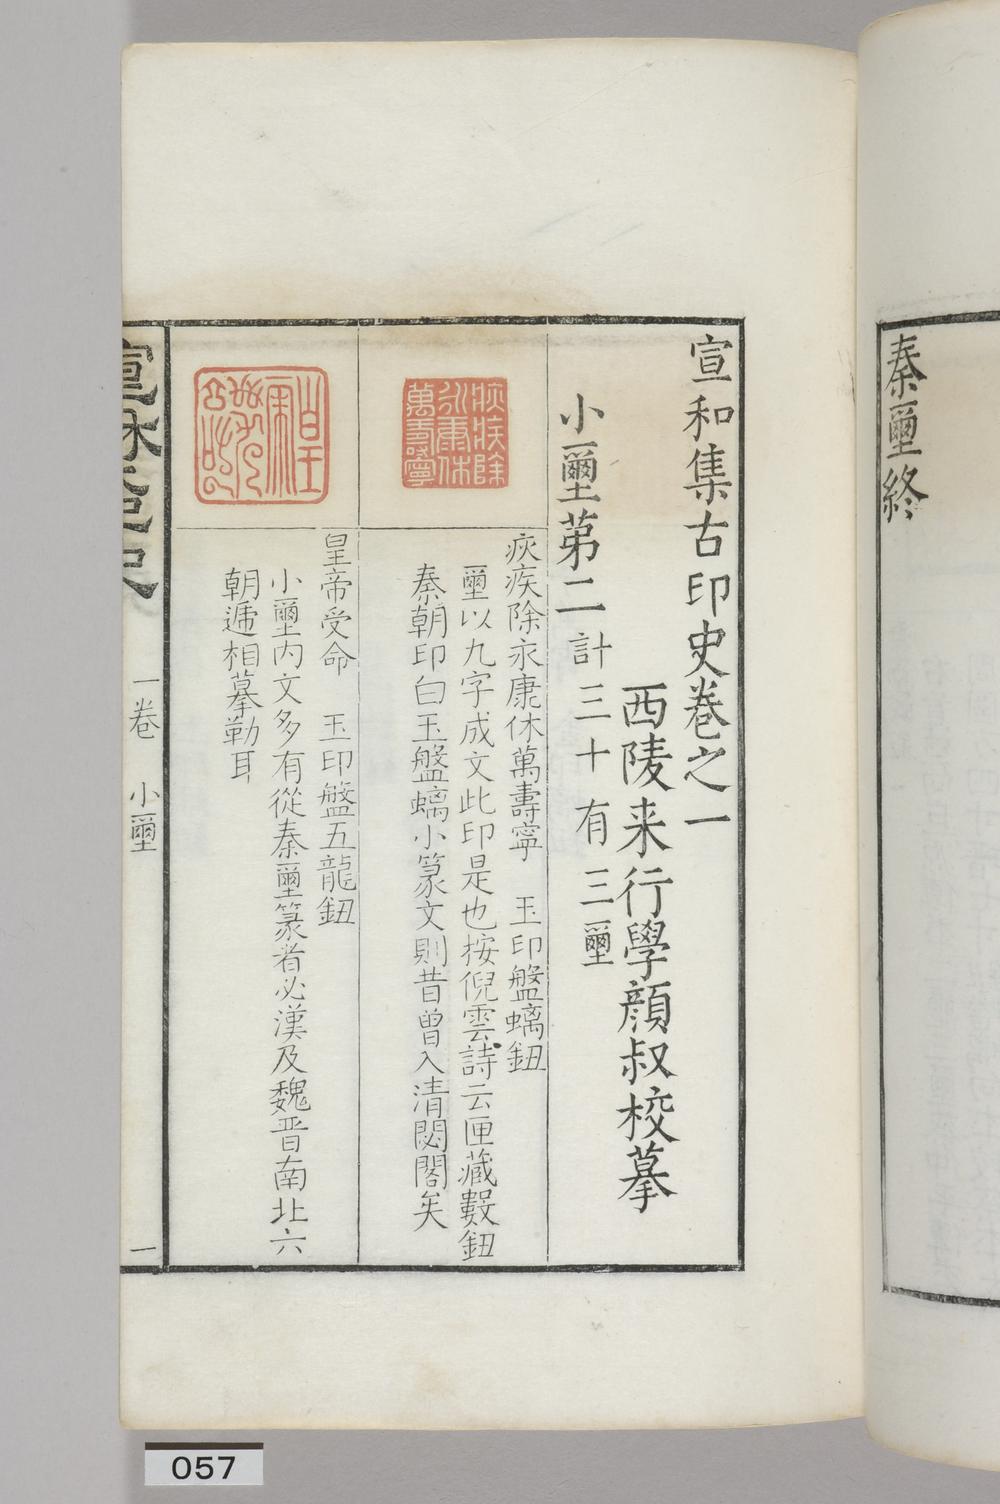 秦璽終
宣和集古印史卷之一
西陵来行學顏叔校摹
小璽苐二計三十有三璽
疢疾除永康休萬壽寧　玉印盤螭鈕
璽以九字成文此印是也按倪雲詩云匣藏數鈕
秦朝印白玉盤螭小篆文則昔曾入清閟閣矣
皇帝受命　玉印盤五龍鈕
小璽内文多有從秦璽篆者必漢及魏晋南北六
朝遞相摹勒耳
疢疾除
永康休
萬壽寧
一卷　小璽
一
057